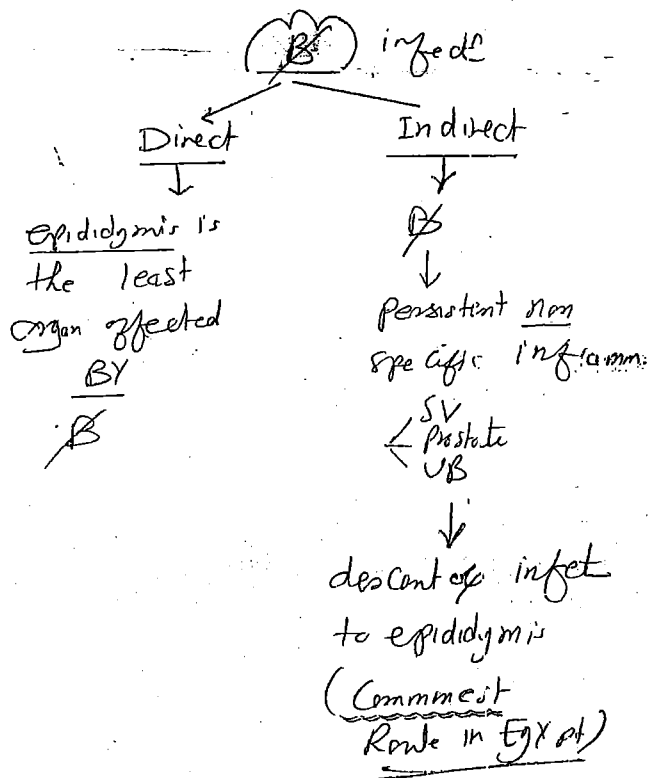 B infect
Direct
epididymis is
the least
organ affected
BY
B
Indirect
B
persistent non
specific inflamm.
SV
Prostate
UB
descent of infect
to epididymis
(Commnest
Route in Egypt)